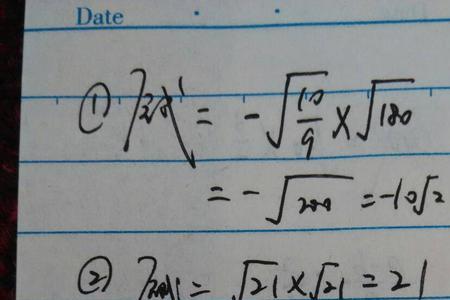 Date
① 原式 = -√(10/9) × √180
= -√200 = -10√2
② 原式 = √21 × √21 = 21